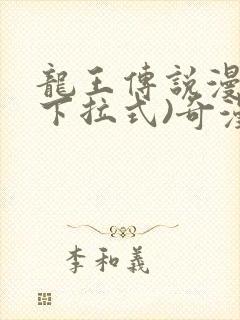 龍王傳說漫
下拉式)奇漫
李和義